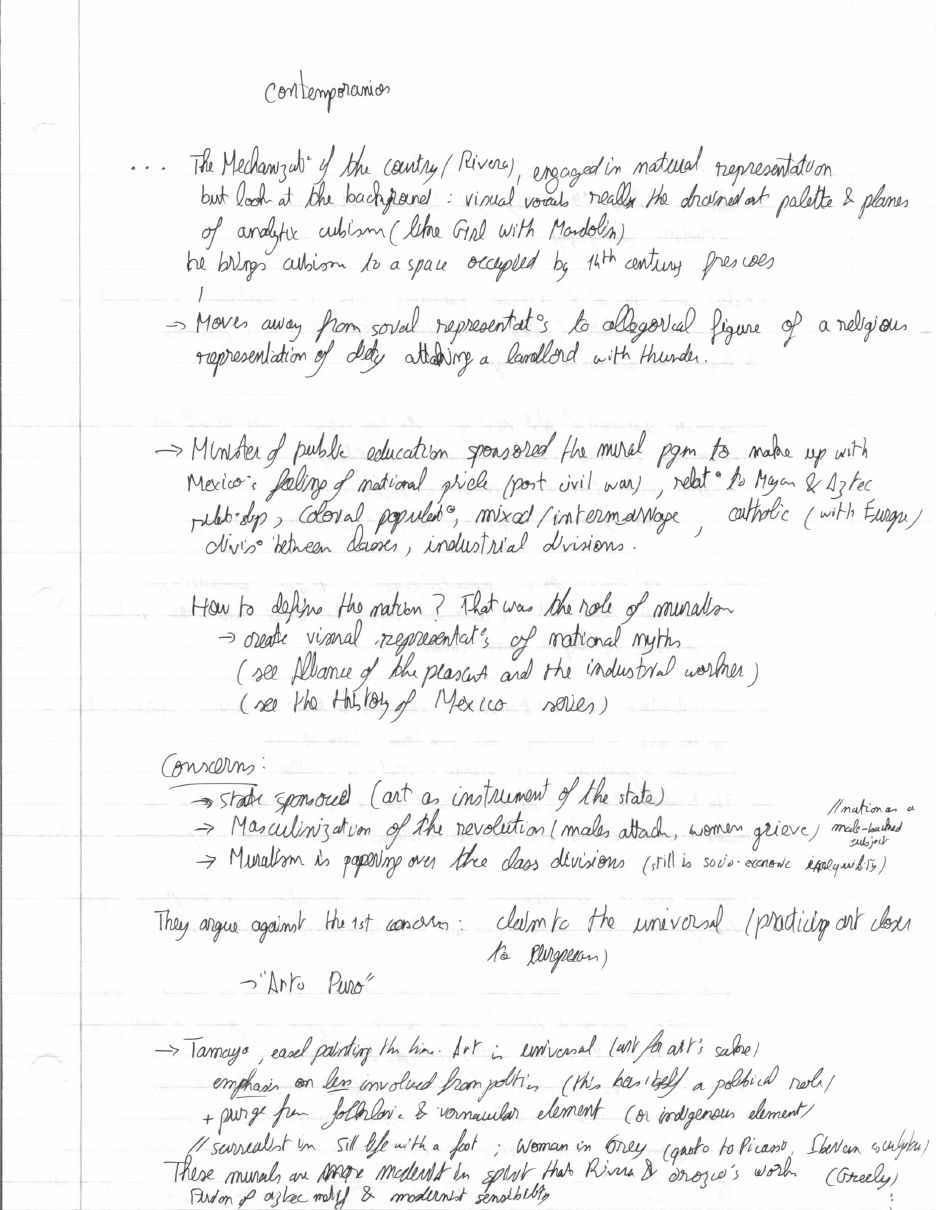 Contemporanios
... The Mechanizat° of the country (Rivera), engaged in material representation
but look at the background : visual vocab really the drained out palette & planes
of analytic cubism (like Girl with Mandolin)
he brings cubism to a space occupied by 14th century frescoes
→ Moves away from social representat°s to allegorical figure of a religious
representation of deity attacking a landlord with thunder.
→ Minister of public education sponsored the mural pgm to make up with
Mexico's feeling of national pride (post civil war), relat° to Mayan & Aztec
relat°shp, colonial populat°, mixed/intermarriage, catholic (with Europe)
divis° between classes, industrial divisions.
How to define the nation? That was the role of muralism
→ create visual representat°s of national myths
(see Alliance of the peasant and the industrial worker)
(see the History of Mexico series)
Concerns:
→ state sponsored (art as instrument of the state)
→ Masculinization of the revolution (males attack, women grieve) //nation as a
male-bodied
subject
→ Muralism is papering over the class divisions (still is socio-economic inequality)
They argue against the 1st concern : claim to the universal (practicing art closer
to European)
→ "Arto Puro"
→ Tamayo, easel painting the time. Art is universal (art for art's sake)
emphasis on less involved from politics (this has itself a political role)
+ purge from folkloric & vernacular element (or indigenous element)
// surrealist in Still life with a foot ; Woman in Grey (quote to Picasso, Iberian sculpture)
These murals are more modernist in spirit than Rivera & Orozco's work (Greely)
Fusion of aztec motif & modernist sensibility